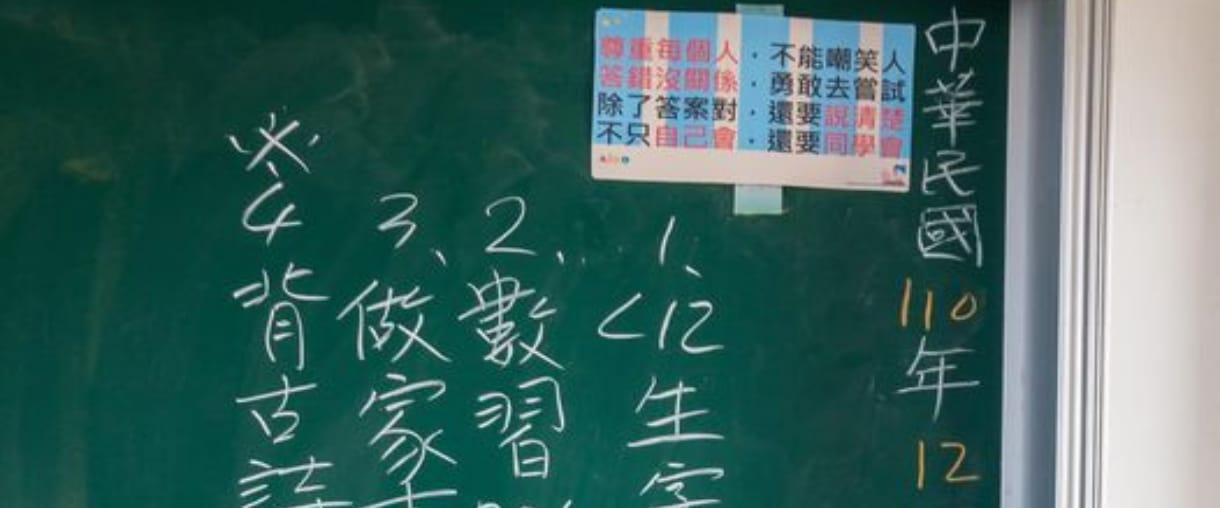 中華民國110年12
尊重每個人，不能嘲笑人
答錯沒關係，勇敢去嘗試
除了答案對，還要說清楚
不只自己會，還要同學會
1、<12生字
2、數習
3、做家
※4背古詩